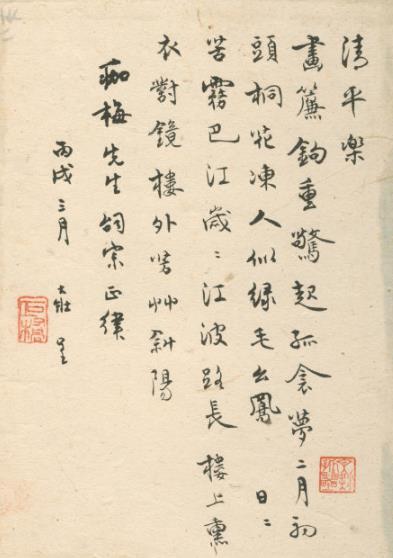 清平樂
畫簾鈎重驚起孤衾夢二月初
頭桐花凍人似緑毛幺鳳 日〻
苦霧巴江歲〻江波路長樓上熏
衣對鏡樓外芳艸斜陽
珈梅先生䛐宗正律
丙戌三月 大壯呈